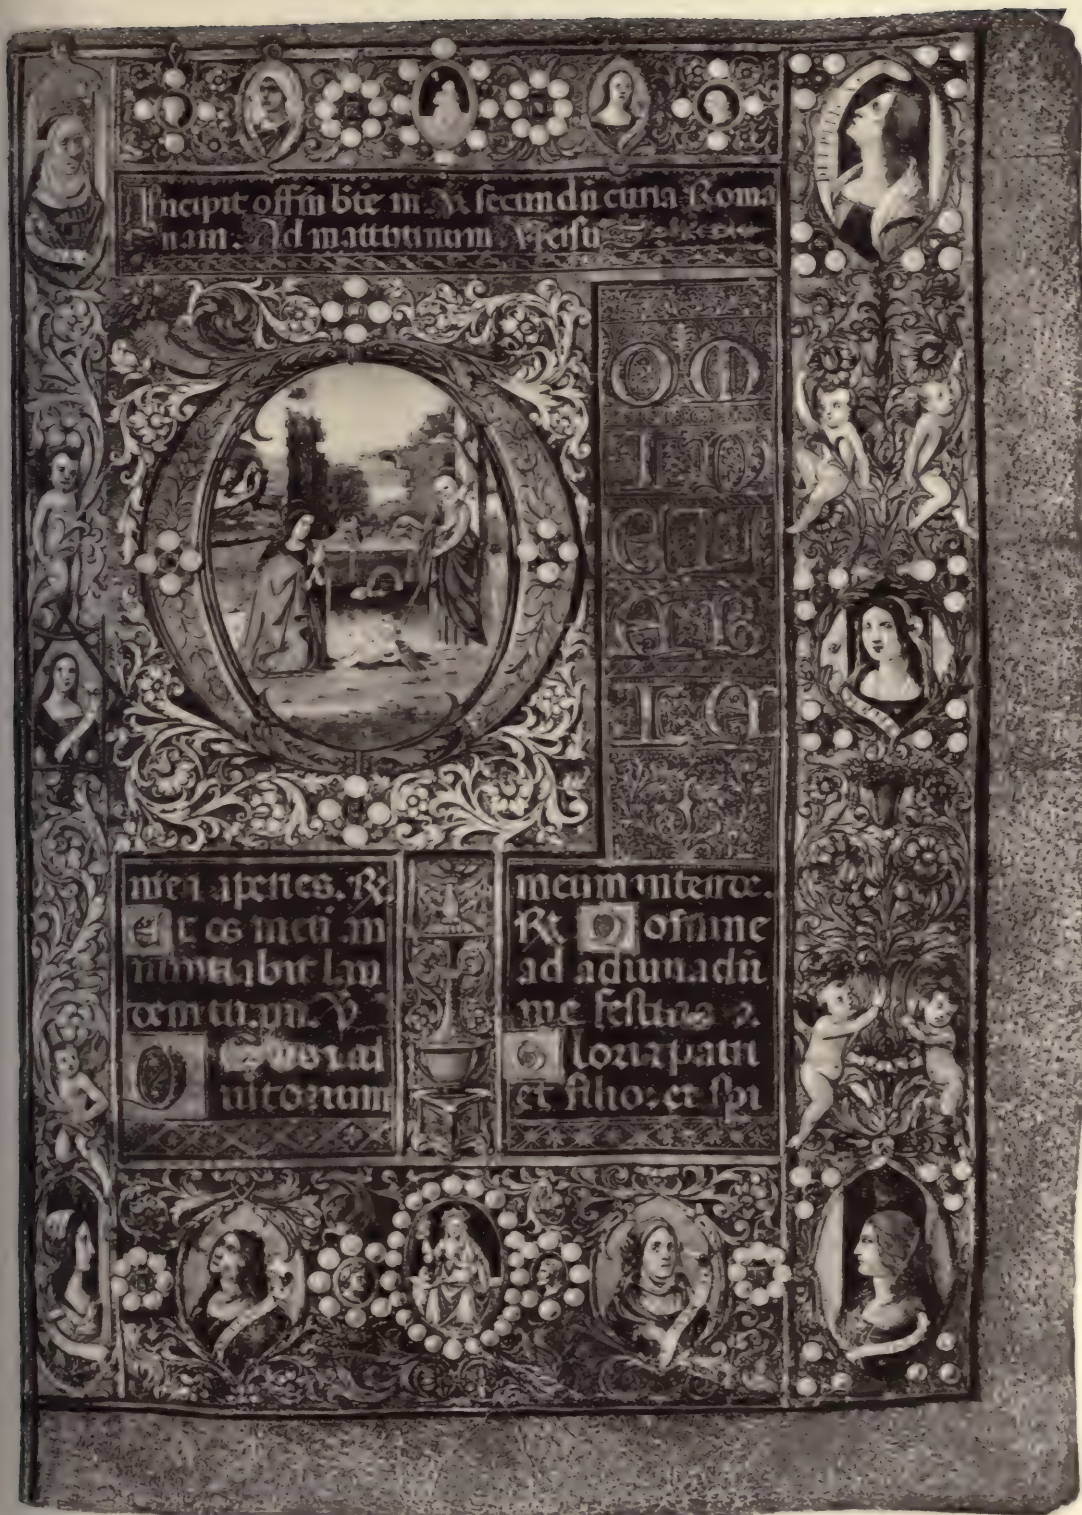 Incipit offm bte m. V secundu curia Roma
nam. Ad matutinum Versu
D
OM
IN
EL
AB
IA
mea aperies. ℟.
Et os meu
nuntiabit lau
dem
Deus i adi
utorium
meum intende.
℟ Domine
ad adiuuadu
me festina
Gloria patri
et filio: et spi